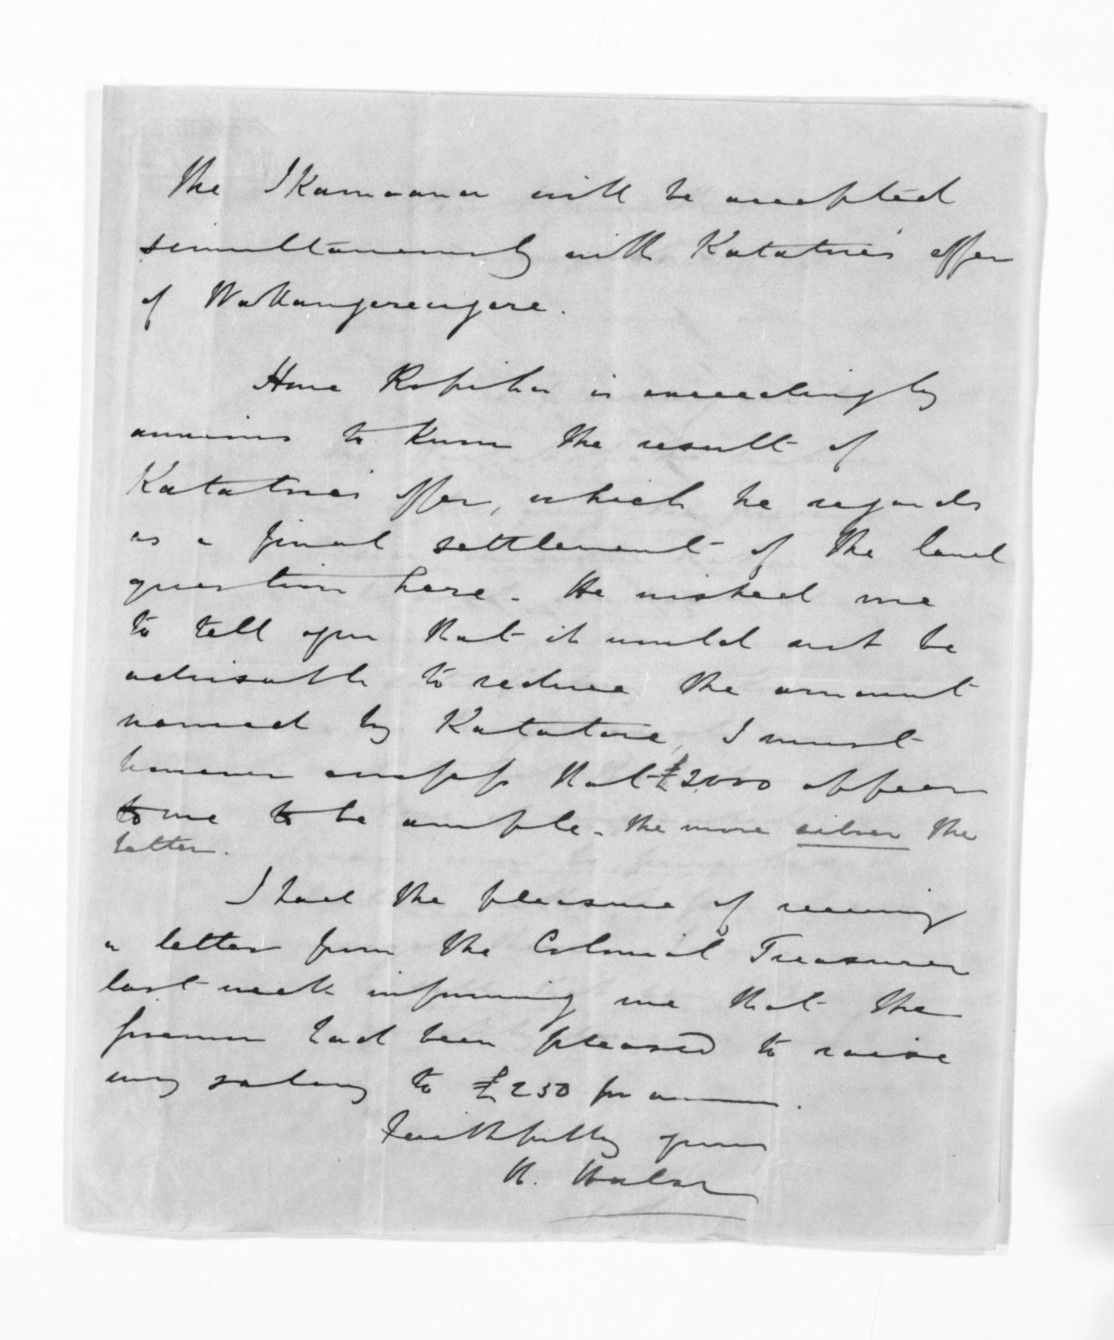 The Ikamoana will be accepted
simultaneously with Katatore's offer
of Wakangerengere.
Hone Ropiha is exceedingly
anxious to know the result of
Katatore's offer, which he regards
as a final settlement of the land
question here. He wished me
to tell you that it would not be
advisable to reduce the amount
named by Katatore, I must
however confess that £2000 appear
to me to be ample. The more silver the
better.
I had the pleasure of receiving
a letter from the Colonial Treasurer
last week informing me that the
Governor had been pleased to raise
my salary to £250 per annum.
Faithfully yours
H. Halse